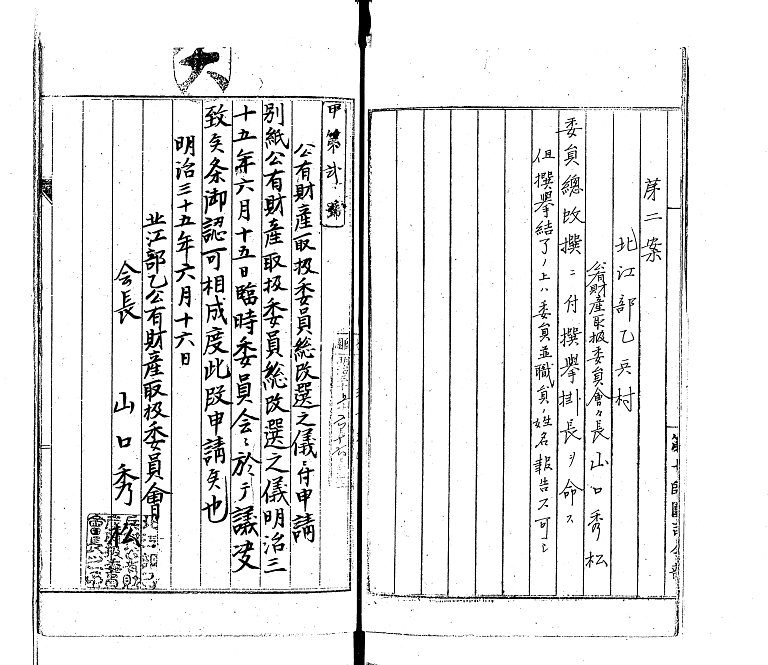 第二案
北江部乙兵村
公有財産取扱委員會々長山口秀松
委員總改撰ニ付撰擧掛長ヲ命ス
但撰擧結了ノ上ハ委員並職員ノ姓名報告ス可シ
大
甲第弐號
公有財産取扱委員総改選之儀ニ付申請
別紙公有財産取扱委員総改選之儀明治三
十五年六月十五日臨時委員会ニ於テ議决
致矣条御認可相成度此段申請矣也
明治三十五年六月十六日
北江部乙公有財産取扱委員會
会長 山口秀松